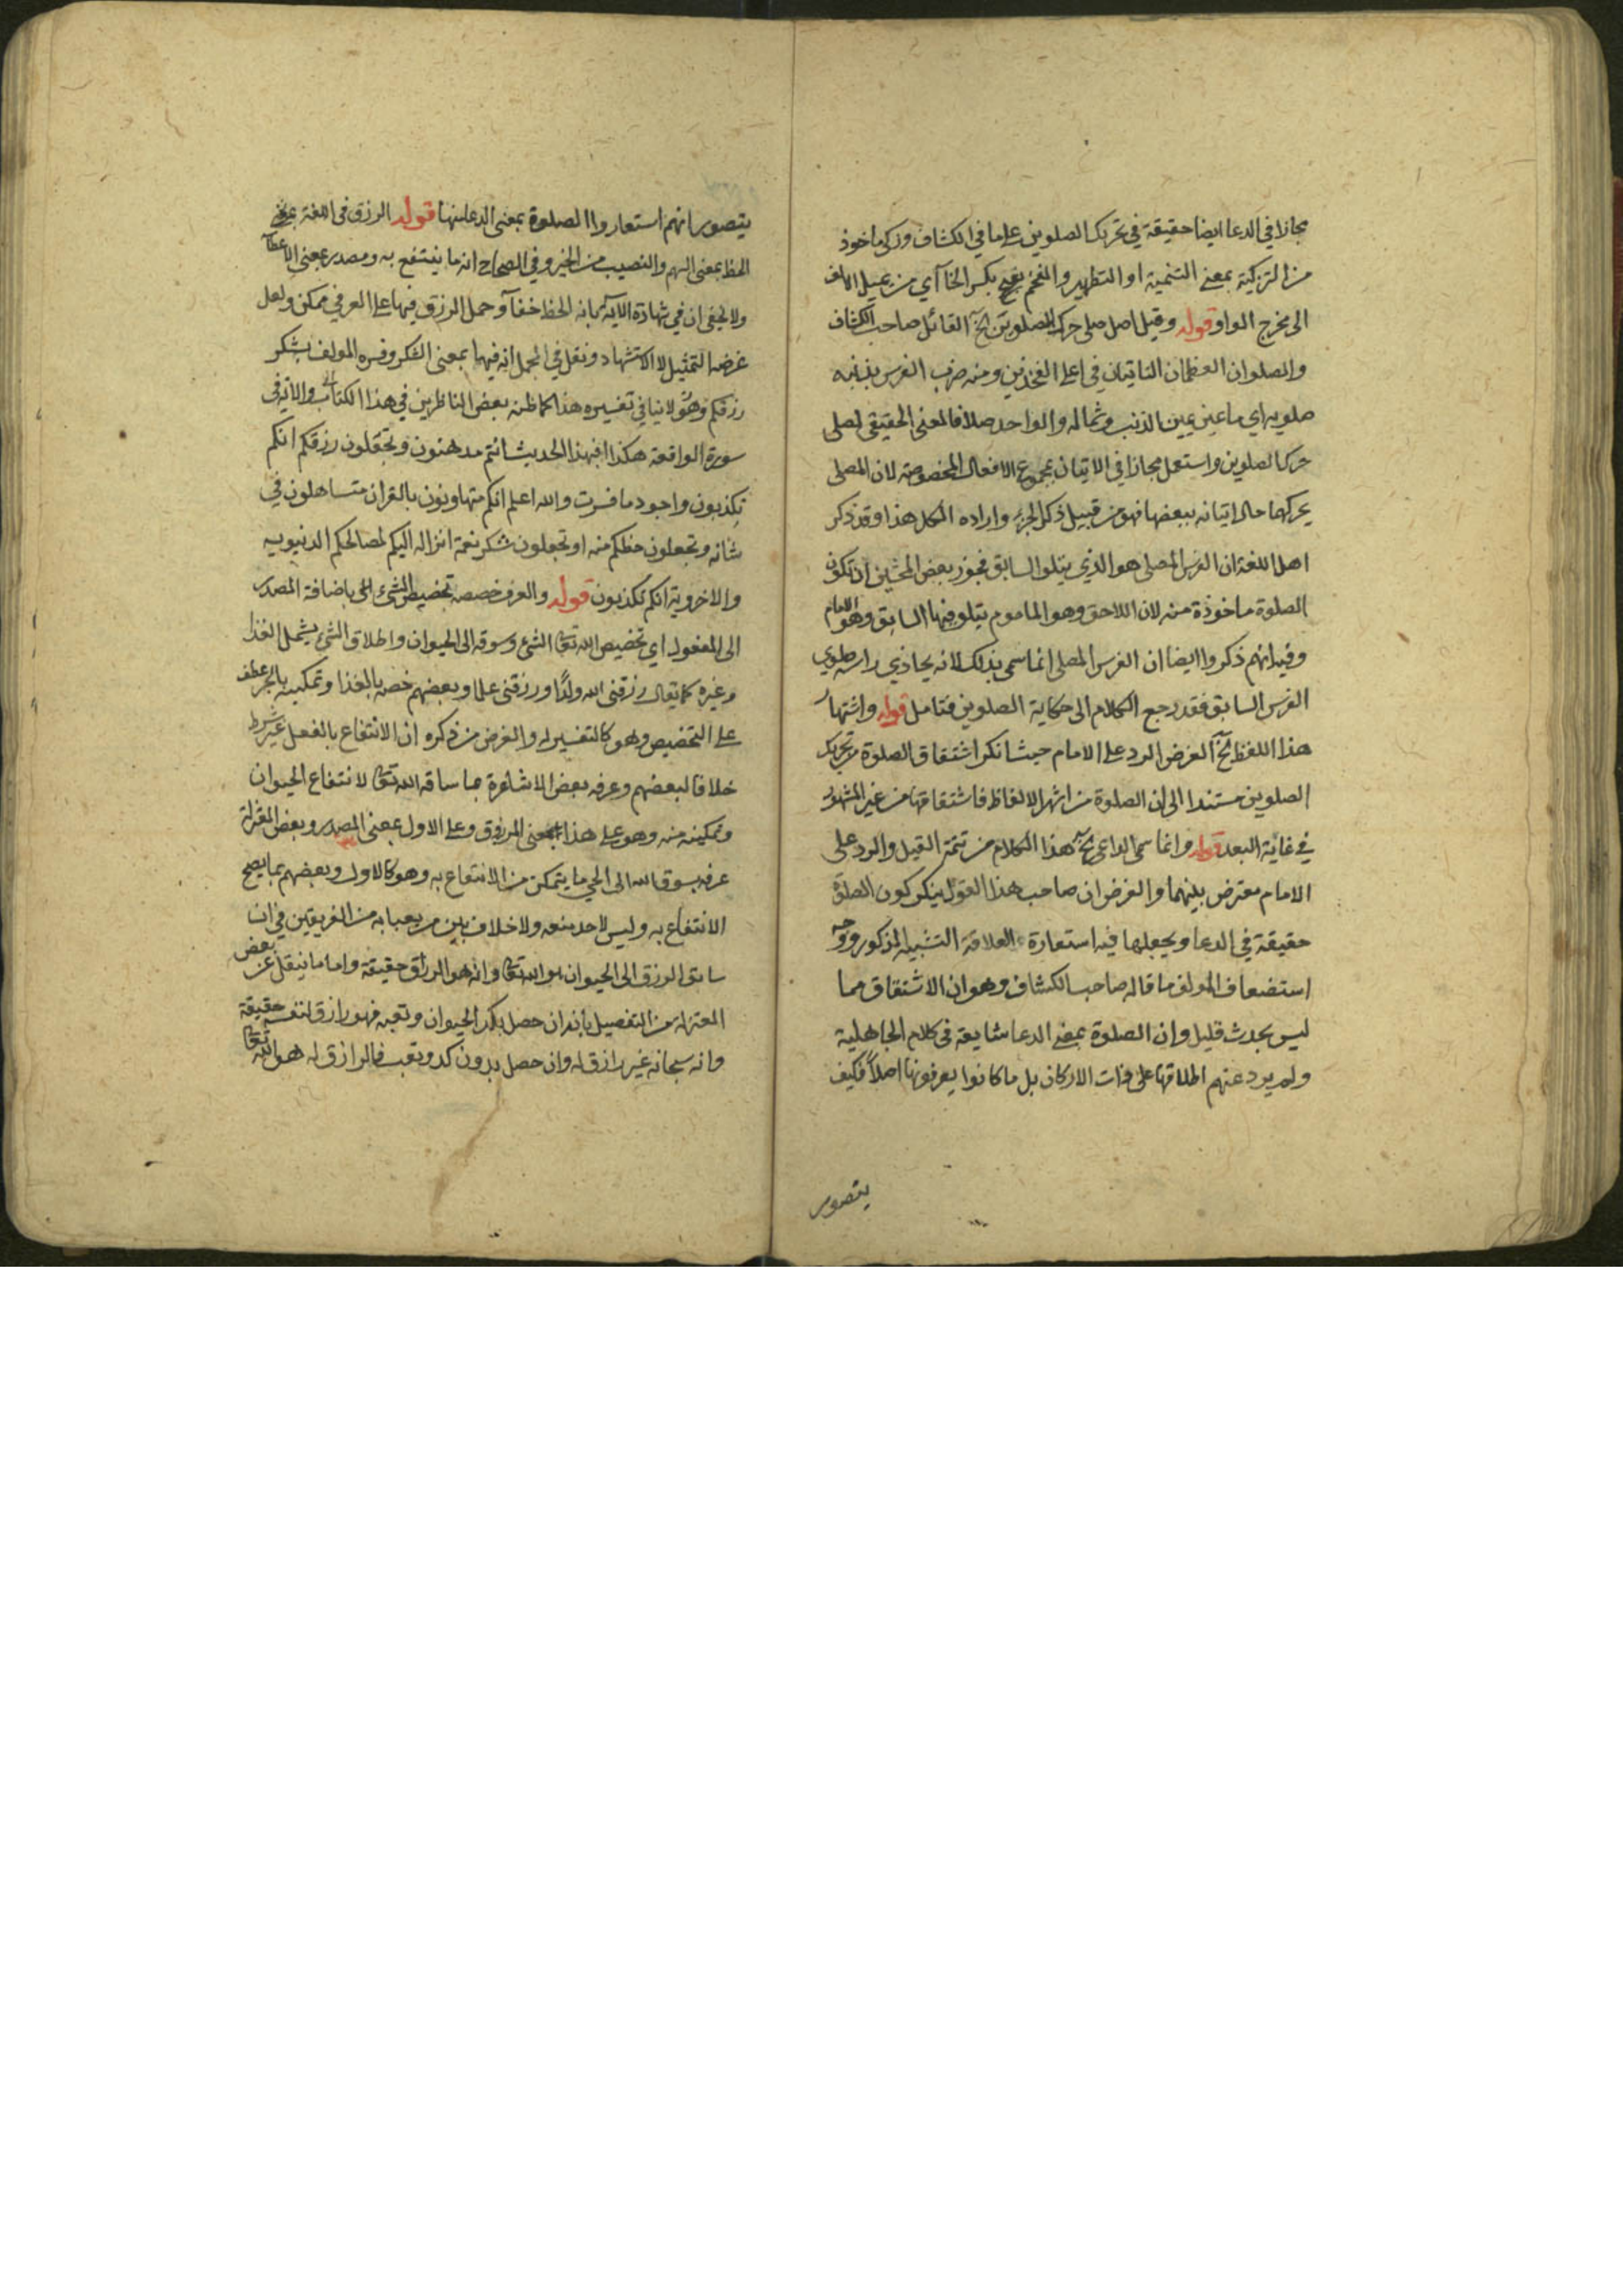 مجازا في الدعا ايضا حقيقة في تحريك الصلوين على ما في الكشاف وزكى ماخوذ
من التزكية بمعنى التنمية او التطهير والمفخم بكسر الخآ آي من يميل الالف
الى مخرج الواو قوله وقيل اصل صلى حرك الصلوين الخ القائل صاحب الكشاف
والصلوان العظمان الناتيان في اعلى الفخذين ومنه ضرب الفرس بذنبه
صلويه اي ما عن يمين الذنب وشماله والواحد صلا فالمعنى الحقيقي لصلى
حرك الصلوين واستعمل مجازا في الاتيان بمجموع الافعال المخصوصة لان المصلى
يحركهما حال اتيانه ببعضها فهو من قبيل ذكر الجزء واراده الكل هذا وقد ذكر
اهل اللغة ان الفرس المصلى هو الذي يتلو السابق فجوز بعض المحشين ان تكون
الصلوة ماخوذة منه لان اللاحق وهو الماموم يتلو فيها السابق وهو الامام
وفيه انهم ذكروا ايضا ان الفرس المصلى انما سمى بذلك لانه يحاذي راسه صلوي
الفرس السابق فقد رجع الكلام الى حكاية الصلوين فتامل قوله واشتهار
هذا اللفظ الخ الغرض الرد على الامام حيث انكر اشتقاق الصلوة من تحريك
الصلوين مستندا الى ان الصلوة من اشهر الالفاظ فاشتقاقها من غير المشهور
في غاية البعد قوله وانما سمى الداعي الخ هذا الكلام من تتمة القيل والرد على
الامام معترض بينهما والغرض ان صاحب هذا القول ينكر كون الصلوة
حقيقة في الدعا ويجعلها فيه استعارة العلاقة التشبيه المذكور ووجه
استضعاف المولف ما قاله صاحب الكشاف وهو ان الاشتقاق مما
ليس بحدث قليل وان الصلوة بمعنى الدعا شايعة في كلام الجاهلية
ولم يرد عنهم اطلاقها على ذات الاركان بل ما كانوا يعرفونها اصلاً فكيف
يتصور
يتصور انهم استعاروا الصلوة بمعنى الدعا منها قوله الرزق في اللغة بمعنى
الحظ بمعنى السهم والنصيب من الخير وفي الصحاح انه ما ينتفع به ومصدر بمعنى الاعطآ
ولا يخفى ان في شهادة الآية بانه الحظ خفآ وحمل الرزق فيها على العرفي ممكن ولعل
غرضه التمثيل لا الاستشهاد ونقل في المجمل انه فيها بمعنى الشكر وفسره المولف بشكر
رزقكم وهو لا ينافي تفسيره هذا كما ظنه بعض الناظرين في هذا الكتاب والآية في
سورة الواقعة هكذا افبهذا الحديث انتم مدهنون وتجعلون رزقكم انكم
تكذبون واجود ما فسرت والله اعلم انكم متهاونون بالقران متساهلون في
شانه وتجعلون حظكم منه او تجعلون شكر نعمة انزاله اليكم لمصالحكم الدنيويه
والاخروية انكم تكذبون قوله والعرف خصصه تخصيص الشئ الخ باضافة المصدر
الى المفعول اي تخصيص الله تعالى الشئ وسوقه الى الحيوان واطلاق الشئ يشمل الغذا
وغيره كما يقال رزقني الله ولدًا ورزقني علما وبعضهم خصه بالغذا وتمكينه بالجر عطف
على التخصيص وهو كالتفسير له والغرض من ذكره ان الانتفاع بالفعل غير شرط
خلافا لبعضهم وعرفه بعض الاشاعرة بما ساقه الله تعالى لانتفاع الحيوان
وتمكينه منه وهو على هذا بمعنى المرزوق وعلى الاول بمعنى المصدر وبعض المعتزلة
عرفه بسوق الله الى الحي ما يتمكن من الانتفاع به وهو كالاول وبعضهم بما يصح
الانتفاع به وليس لاحد منعه ولا خلاف بين من يعبا به من الفريقين في ان
سابق الرزق الى الحيوان هو الله تعالى وانه هو الرزاق حقيقة واما ما ينقل عن بعض
المعتزلة من التفصيل بأنه ان حصل بكد الحيوان وتعبه فهو رازق لنفسه حقيقة
وانه سبحانه غير رازق له وان حصل بدون كد وتعب فالرازق له هو الله تعالى